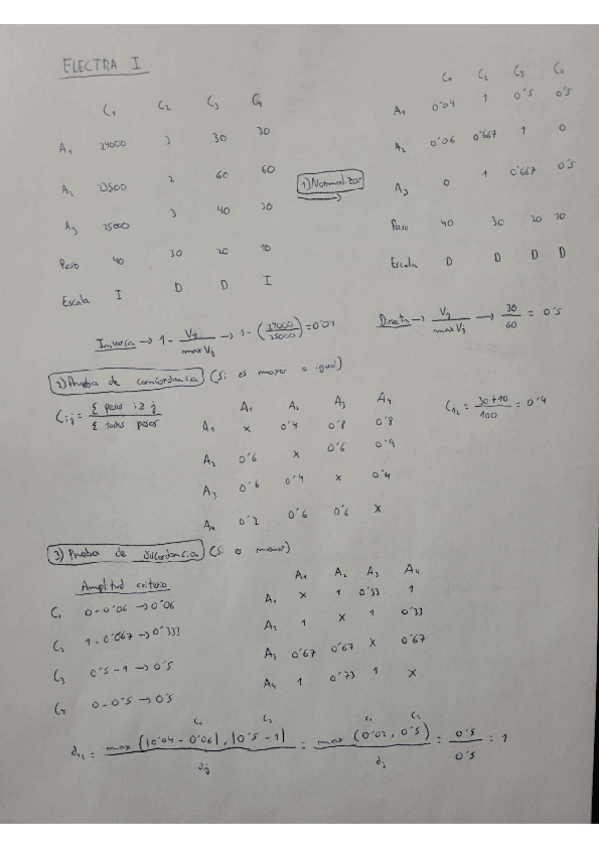 ELECTRA I
C₁ C₂ C₃ C₄
A₁ 24000 3 30 30
A₂ 23500 2 60 60
A₃ 25000 3 40 30
Peso 40 30 20 10
Escala I D D I
1) Normalizar
C₁ C₂ C₃ C₄
A₁ 0'04 1 0'5 0'5
A₂ 0'06 0'667 1 0
A₃ 0 1 0'667 0'5
Peso 40 30 20 10
Escala D D D D
Inversa → 1 - Vj / max Vj → 1 - (24000 / 25000) = 0'04
Directa → Vj / max Vj → 30 / 60 = 0'5
2) Prueba de concordancia (Si es mayor o igual)
Cij = Σ pesos i ≥ j / Σ todos pesos
A₁ A₂ A₃ A₄
A₁ x 0'4 0'8 0'8
A₂ 0'6 x 0'6 0'4
A₃ 0'6 0'4 x 0'4
A₄ 0'2 0'6 0'6 x
C₁₂ = 30+10 / 100 = 0'4
3) Prueba de discordancia (Si es menor)
Amplitud criterio
C₁ 0 - 0'06 → 0'06
C₂ 1 - 0'667 → 0'333
C₃ 0'5 - 1 → 0'5
C₄ 0 - 0'5 → 0'5
A₁ A₂ A₃ A₄
A₁ x 1 0'33 1
A₂ 1 x 1 0'33
A₃ 0'67 0'67 x 0'67
A₄ 1 0'73 1 x
C₁ C₃ C₁ C₃
= max {|0'04 - 0'06|, |0'5 - 1|} / dj = max (0'02, 0'5) / dj = 0'5 / 0'5 = 1